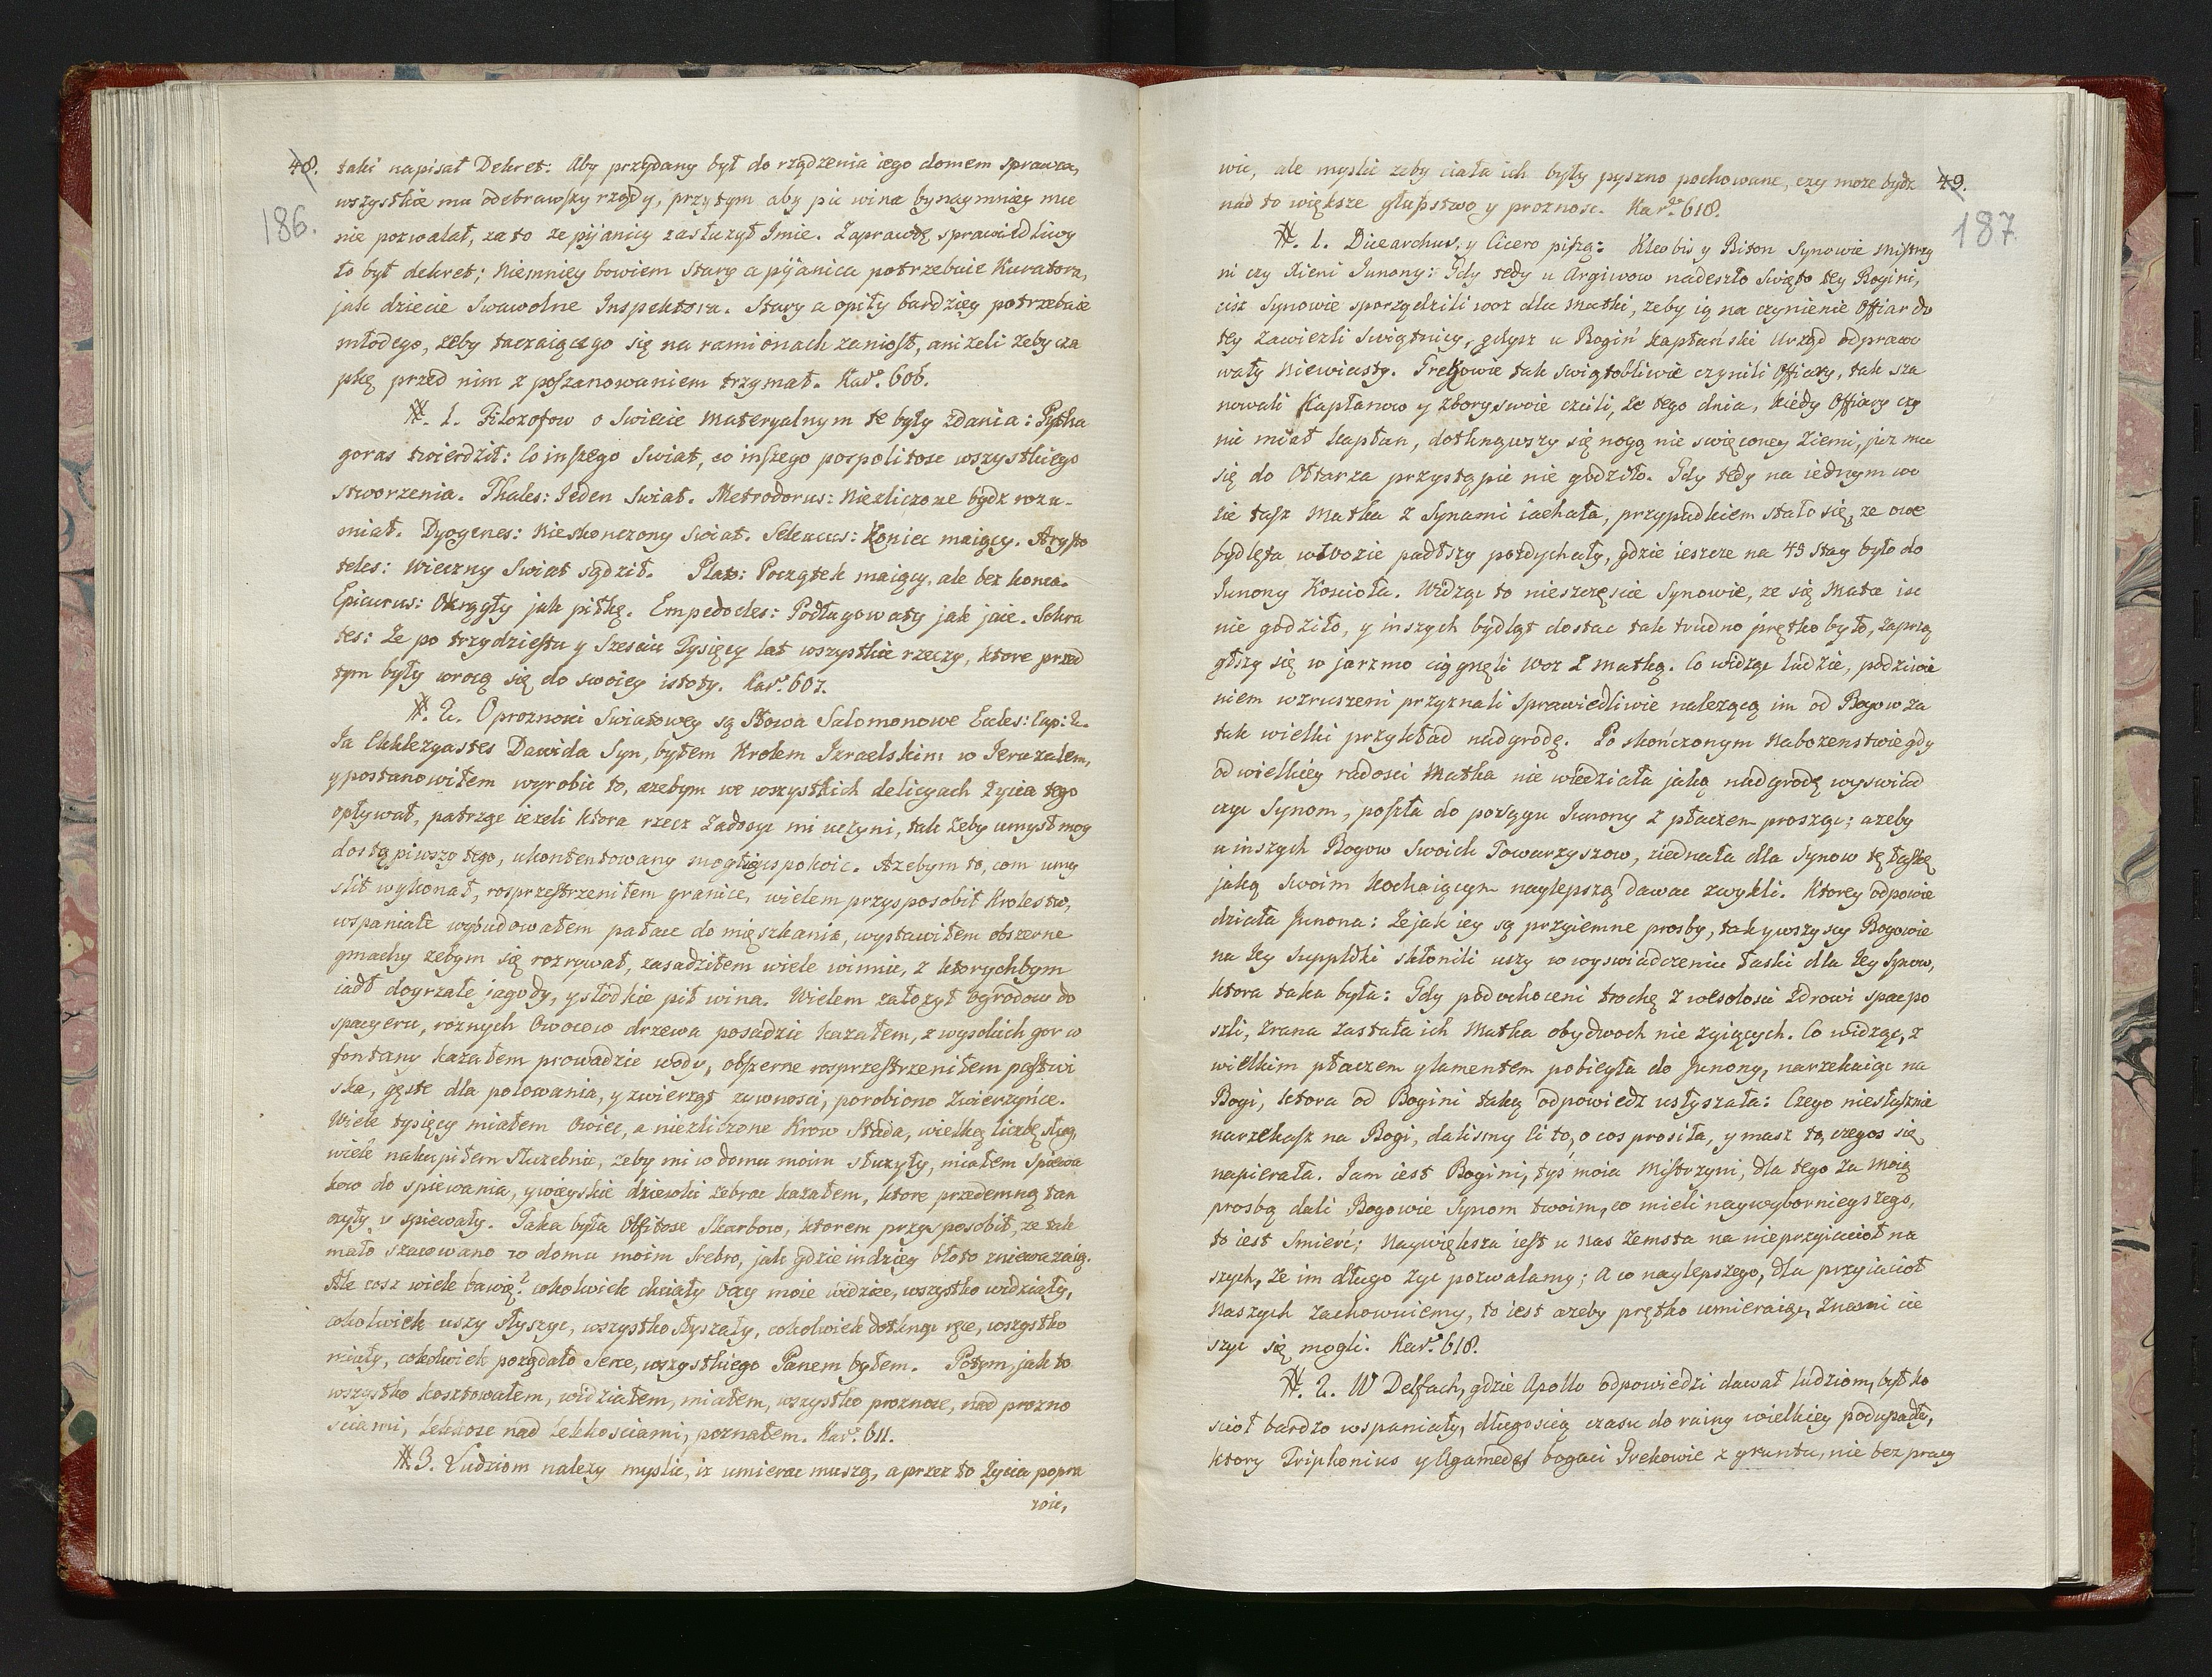 48. taki napisał Dekret: Aby przydany był do rządzenia iego domem sprawca,
186.
wszystkie mu odebrawszy rządy, przytym aby pic wina bynaymniey mu
nie pozwalał, za to ze pijanicy zasłuzył Imie. Zaprawdę sprawiedliwy
to był dekret; Niemniey bowiem Stary a pijanica potrzebuie Kuratora,
jak dziecie Swawolne Inspektora. Stary a opiły bardziey potrzebuie
młodego, zeby taczaiącego się na ramionach zaniosł, anizeli zeby cza
pkę przed nim z poszanowaniem trzymał. Kar. 606.
N. 1. Filozofow o Swiecie Materyalnym te były zdania: Pytha
goras twierdził: Co inszego Swiat, co inszego pospolitosc wszystkiego
stworzenia. Thales: Ieden Swiat. Metrodorus: Niezliczone bydz rozu-
miał. Dyogenes: Nieskonczony Swiat. Seleucus: Koniec maiący. Arysto
teles: Wieczny Swiat sądził. Plato: Początek maiący, ale bez konca.
Epicurus: Okrągły jak piłkę. Empedocles: Podługowaty jak jaie. Sokra
tes: Ze po trzydziestu y Szesciu Tysięcy lat wszystkie rzeczy, ktore przed
tym były wrocą się do swoiey istoty. Kar. 607.
N. 2. O proznosci Swiatowey są Słowa Salomonowe Eccles: Cap: 2.
Ia Ekklezyastes Dawida Syn, byłem Krolem Izraelskim w Ieruzalem,
y postanowiłem wyrobic to, azebym we wszystkich delicyach zycia tego
opływał, patrząc iezeli ktora rzecz Zadosyc mi uczyni, tak zeby umysł moy
dostąpiwszy tego, ukontentowany mogł się uspokoic. Azebym to, com umy
slił wykonał, rosprzestrzeniłem granice, wielem przysposobił Krolestw,
wspaniałe wybudowałem pałace do mięszkania, wystawiłem obszerne
gmachy zebym się rozrywał, zasadziłem wiele winnic, z ktorychbym
iadł doyrzałe jagody, y słodkie pił wina. Wielem załozył ogrodow do
spacyeru, roznych Owocow drzewa posadzic kazałem, z wysokich gor w
fontany kazałem prowadzic wody, obszerne rosprzestrzeniłem pastwi
ska, gęste dla polowania, y zwierząt zywnosci, porobiono Zwierzyńce.
Wiele tysięcy miałem Owiec, a niezliczone Krow Stada, wielką liczbę sług,
wiele nakupiłem Słuzebnic, zeby mi w domu moim słuzyły, miałem Spiewa
kow do spiewania, y wieyskie dziewki zebrac kazałem, ktore przedemną tan
czyły y spiewały. Taka była Obfitosc Skarbow, ktorem przysposobił, ze tak
mało szacowano w domu moim Srebro, jak gdzie indziey błoto zniewazaią.
Ale cosz wiele bawię? cokolwiek chciały Oczy moie widziec, wszystko widziały,
cokolwiek uszy słyszyc, wszystko słyszały, cokolwiek dotknąc ręce, wszystko
miały, cokolwiek poządało Serce, wszystkiego Panem byłem. Potym, jak to
wszystko kosztowałem, widziałem, miałem, wszystko proznosc, nad prozno
sciami, lekkosc nad lekkosciami, poznałem. Kar. 611.
N. 3. Ludziom nalezy myslic, iz umierac muszą, a przez to Zycia popra
wic,
wic, ale myslic zeby ciała ich były pyszno pochowane, czy moze bydz 49.
187.
nad to większe głupstwo y proznosc. Kar. 618.
N. 1. Dicearchus, y Cicero piszą: Kleobis y Biton Synowie Mistrzy
ni czy Xieni Iunony: Gdy tedy u Argiwow nadeszło Swięto tey Bogini,
cisz Synowie sporządzili woz dla Matki, zeby ią na czynienie Offiar do
tey zawiezli Swiątnicy, gdysz u Bogiń Kapłański Urząd odprawo
wały Niewiasty. Grekowie tak swiątobliwie czynili Offiary, tak sza
nowali Kapłanow y Zbory swoie czcili, ze tego dnia, kiedy Offiary czy
nic miał kapłan, dotknąwszy się nogą nie swięconey Ziemi, juz mu
się do Ołtarza przystąpic nie godziło. Gdy tedy na iednym wo
zie tasz Matka z Synami iachała, przypadkiem stało się, ze owe
bydlęta w wozie padłszy pozdychały, gdzie ieszcze na 45 stay było do
Iunony Kosciola. Widząc to nieszczęscie Synowie, ze się Matce isc
nie godziło, y inszych bydląt dostac tak trudno prętko było, zaprzą
głszy się w jarzmo ciągnęli woz z Matką. Co widząc ludzie, podziwie
niem wzruszeni przyznali Sprawiedliwie nalezącą im od Bogow za
tak wielki przykład nadgrodę. Po skończonym Nabozenstwie gdy
od wielkiey radosci Matka nie wiedziała jaką nadgrodę wyswiad
czyc Synom, poszła do posągu Iunony z płaczem prosząc; azeby
u inszych Bogow Swoich Towarzyszow, ziednała dla Synow tę łaskę
jaką Swoim kochaiącym naylepszą dawac zwykli. Ktorey odpowie
działa Junona: Ze jak iey są przyiemne prosby, tak y wszyscy Bogowie
na Iey Suppliki skłonili uszy w wyswiadczeniu łaski dla Iey Synow,
ktora taka była: Gdy podochoceni trochę z wesołosci Zdrowi spac po
szli, Zrana Zastała ich Matka obydwoch nie zyiących. Co widząc, z
wielkim płaczem y lamentem pobiegła do Junony, narzekaiąc na
Bogi, ktora od Bogini taką odpowiedz usłyszała: Czego niesłusznie
narzekasz na Bogi, dalismy Ci to, o cos prosiła, y masz to, czegos się
napierała. Iam iest Bogini, tyś moia Mistrzyni, dla tego za Moią
prosbą dali Bogowie Synom twoim, co mieli naywybornieyszego,
to iest Smierć; Naywiększa iest u nas Zemsta na nieprzyiacioł na
szych, ze im długo zyc pozwalamy; A co naylepszego, dla przyiacioł
Naszych Zachowuiemy, to iest azeby prętko umieraiąc, Z nami cie
szyc się mogli. Kar. 618.
N. 2. W Delfach, gdzie Apollo odpowiedzi dawał ludziom, był ko
scioł bardzo wspaniały, długoscią czasu do ruiny wielkiey podupadł,
ktory Triphonius y Agamedes bogaci Grekowie z gruntu, nie bez pracy